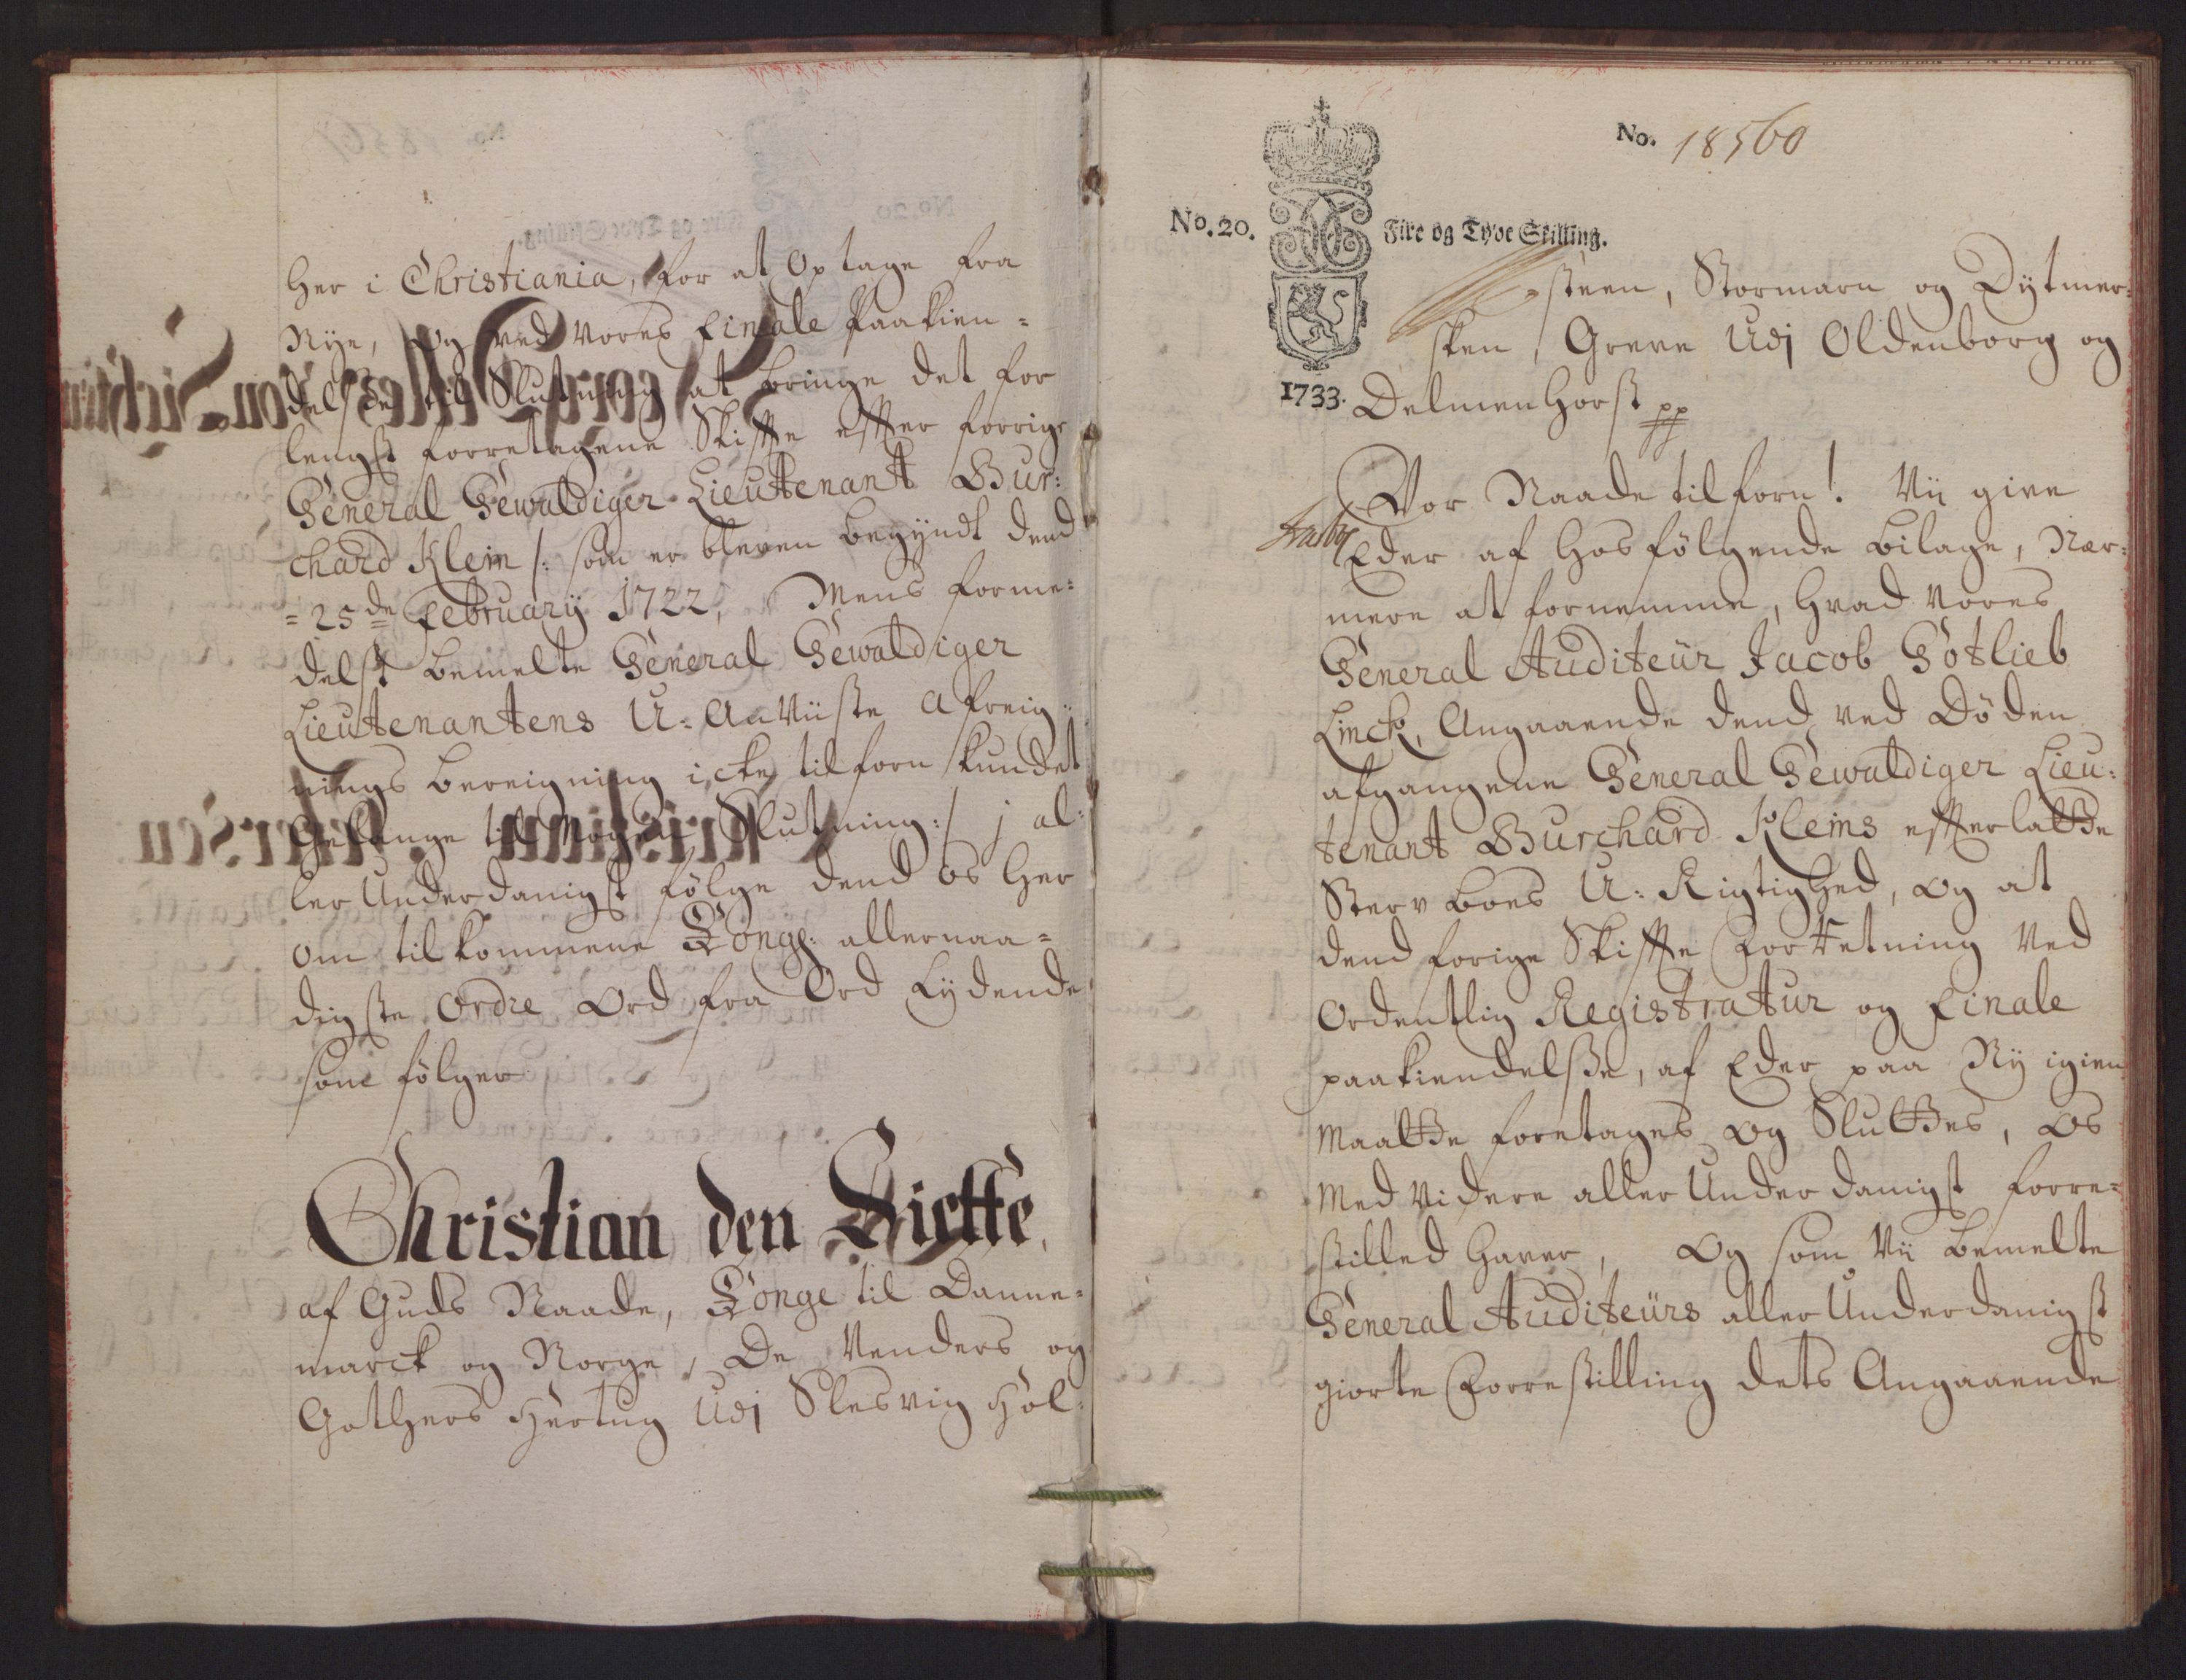 Her i Christiania, for at Optage fra
Nÿe, Og ved Vores Finale Paakien=
delse til Slutning at bringe det for
lengst forretagene Skifte efter forrige
General Gewaldiger Lieutenant Bur:
chard Klein /: som er bleven begÿndt dend
=25de Februarÿ 1722, Mens forme:
delst bemelte General Gewaldiger
Lieutenantens U=AnViiste Afreig=
nings bereigning icke tilforn kundet
gelange til Slutning :/ j al:
ler Underdanigst følge dend os her
om tilkommene Konge: allernaa=
digste Ordre Ord fra Ord Lÿdende
som følger
Christian den Siette,
af Guds Naade, Konge til Danne=
marck og Norge, De Venders og
Gothers Hertug Udj Slesvig Hol=
No. 18560
No. 20. Fire og Tyve Skilling.
1733.
=steen, Stormarn og Dÿtmer=
sken, Greve Udj Oldenborg og
Delmenhorst pp
Vor Naade tilforn! Vii give
Eder af hosfølgende bilage, Nær=
mere at fornemme, hvad Vores
General Auditeür Jacob Gotlieb
Linck, Angaaende dend ved Døden
afgangene General Gewaldiger Lieu=
tenant Burchard Kleins efterladte
Sterv boes U=Rigtighed, og at
dend forige Skifte Forretning Ved
Ordentlig Registratur og Finale
paakiendelße, af Eder paa Nÿ igien
maatte foretages og Sluttes, Os
med Videre aller Underdanigst forre=
stilled haver, Og som Vii bemelte
General Auditeürs aller Underdanigst
giorte Forrestilling dets Angaaende